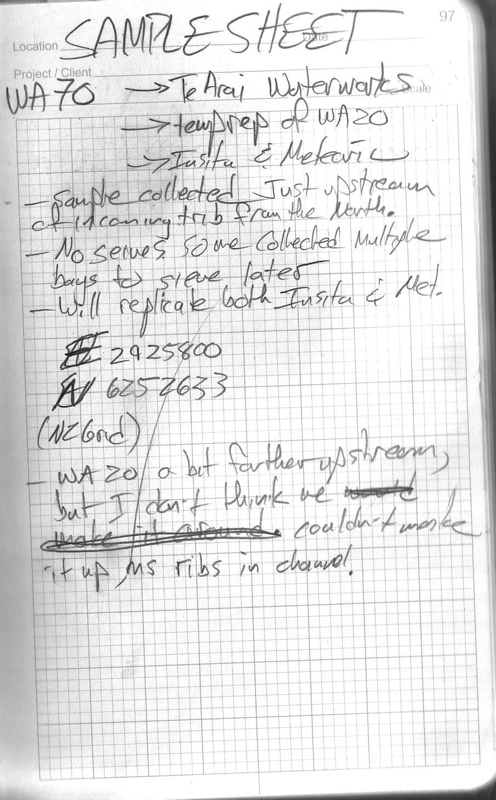 97
Location SAMPLE SHEET Date
Project / Client Scale
WA70 → Te Arai Waterworks
→ temp rep of WA20
→ Insitu & Meteoric
- Sample collected Just upstream
of incoming trib from the North.
- No serves some collected Multiple
bags to sieve later
- Will replicate both Insitu & Met.
E 2925800
N 6252633
(NZ Grid)
- WA 20 a bit farther upstream,
but I don't think we
make it around couldn't make
it up, ms ribs in channel.